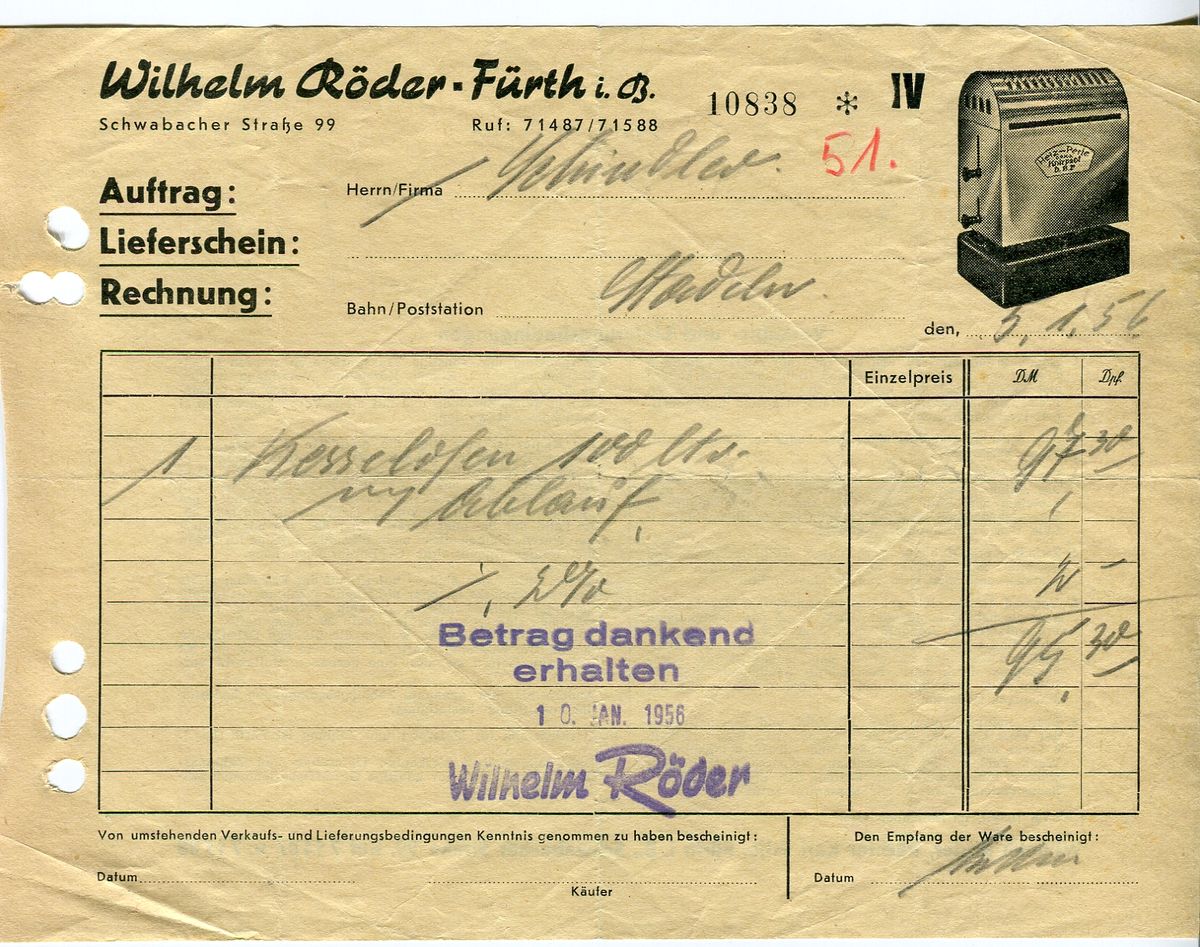 Wilhelm Röder - Fürth i. B.
Schwabacher Straße 99 Ruf: 71487/71588
10838 * IV
51.
Heiz-Perle
D.B.P.
Auftrag:
Lieferschein:
Rechnung:
Herrn/Firma Schindler.
Bahn/Poststation Stadeln
den, 5.1.56
Einzelpreis DM Dpf.
1 Kesselofen 100 ltr. 97 30
m/ Ablauf,
2% 2 -
95, 30
Betrag dankend
erhalten
10. JAN. 1956
Wilhelm Röder
Von umstehenden Verkaufs- und Lieferungsbedingungen Kenntnis genommen zu haben bescheinigt:
Datum
Käufer
Den Empfang der Ware bescheinigt:
Datum